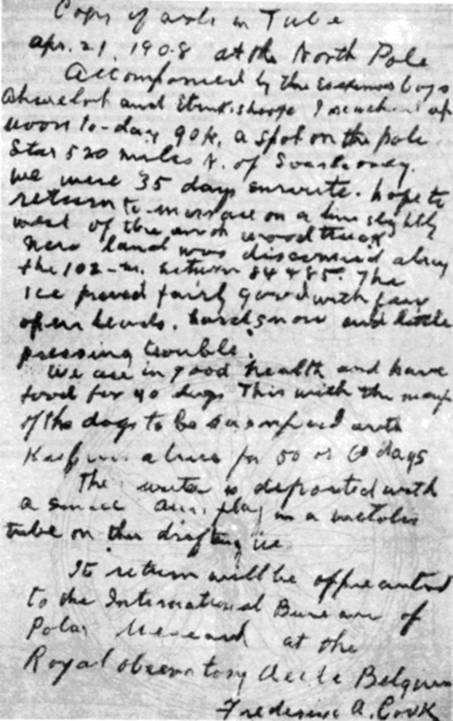 Copy of note in Tube
Apr. 21, 1908 at the North Pole
Accompanied by the Eskimo boys
Ahwelah and Etukishook I reached at
noon to-day 90 N. a spot on the polar
Star 520 miles N. of Svartevoeg.
We were 35 days enroute. hope to
return to-morrow on a line slightly
west of the north
New land was discovered along
the 102 m. between 84 & 85. The
Ice proved fairly good with few
open leads, hard snow and little
pressing trouble.
We are in good health and have
food for 40 days This with the meat
of the dogs to be sacrificed will
Keep us alive for 50 or 60 days
This is deposited with
a small Am. flag in a metallic
tube on the drifting ice.
Its return will be appreciated
to the International Bureau of
Polar Research at the
Royal observatory Uccle Belgium
Frederick A. Cook